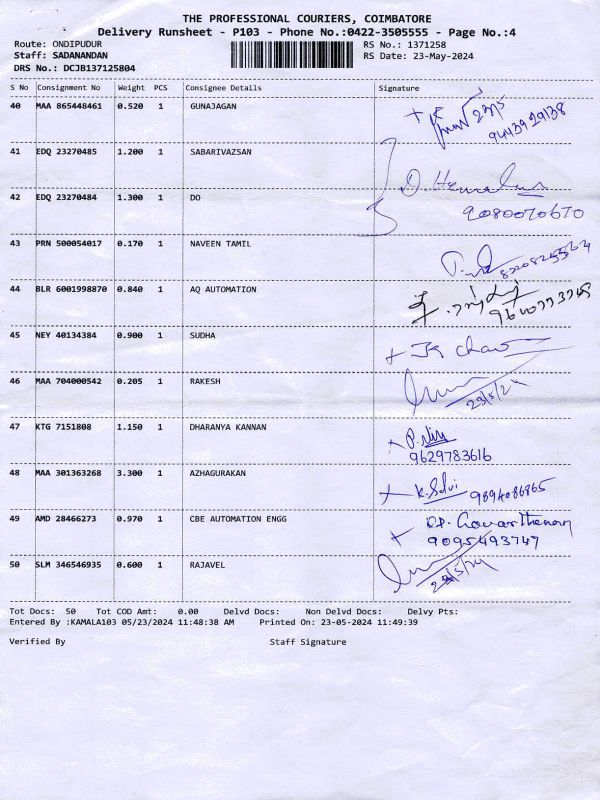 THE PROFESSIONAL COURIERS, COIMBATORE
Delivery Runsheet - P103 - Phone No.:0422-3505555 - Page No.:4
Route: ONDIPUDUR RS No.: 1371258
Staff: SADANANDAN RS Date: 23-May-2024
DRS No.: DCJB137125804
S No Consignment No Weight PCS Consignee Details Signature
40 MAA 865448461 0.520 1 GUNAJAGAN
41 EDQ 23270485 1.200 1 SABARIVAZSAN
42 EDQ 23270484 1.300 1 DO 9080070670
43 PRN 500054017 0.170 1 NAVEEN TAMIL
44 BLR 6001998870 0.840 1 AQ AUTOMATION
45 NEY 40134384 0.900 1 SUDHA
46 MAA 704000542 0.205 1 RAKESH 23/5/24
47 KTG 7151808 1.150 1 DHARANYA KANNAN
9629783616
48 MAA 301363268 3.300 1 AZHAGURAKAN K. Selvi 9894086865
49 AMD 28466273 0.970 1 CBE AUTOMATION ENGG
9095493747
50 SLM 346546935 0.600 1 RAJAVEL 23/5/24
Tot Docs: 50 Tot COD Amt: 0.00 Delvd Docs: Non Delvd Docs: Delvy Pts:
Entered By :KAMALA103 05/23/2024 11:48:38 AM Printed On: 23-05-2024 11:49:39
Verified By Staff Signature